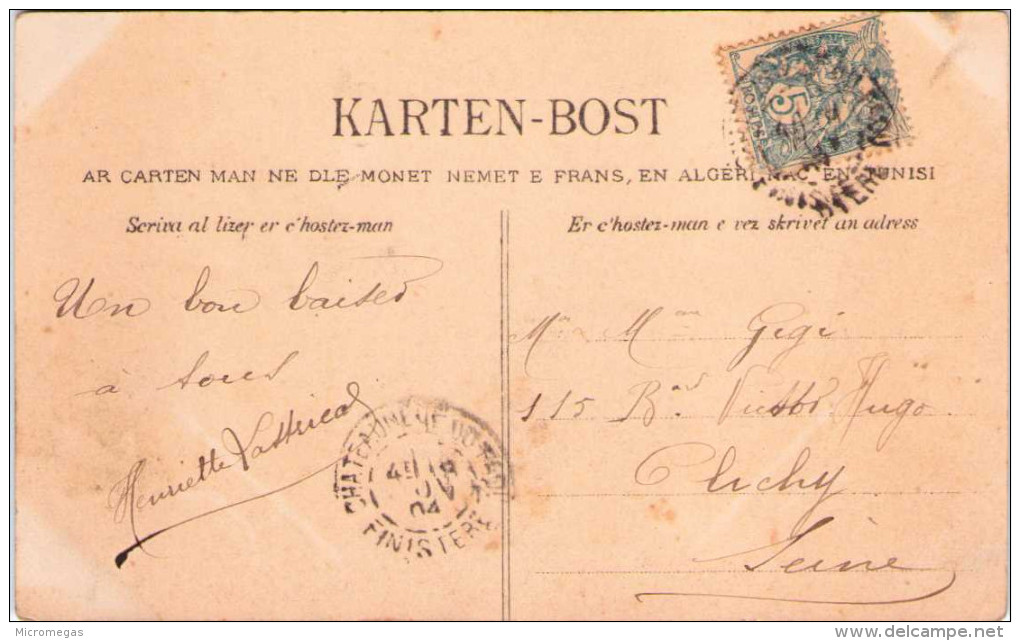 KARTEN-BOST
AR CARTEN MAN NE DLE MONET NEMET E FRANS, EN ALGERI NAC EN TUNISI
Scriva al lizer er c'hostez-man
Er c'hostez-man e vez skrivet an adress
Un bon baiser
à tous
Henriette
Mr Mme Gigi
115 Bard Victor Hugo
Clichy
Seine
5
CHATEAUNEUF DU FAOU
04
FINISTERE
Micromegas
delcampe.net